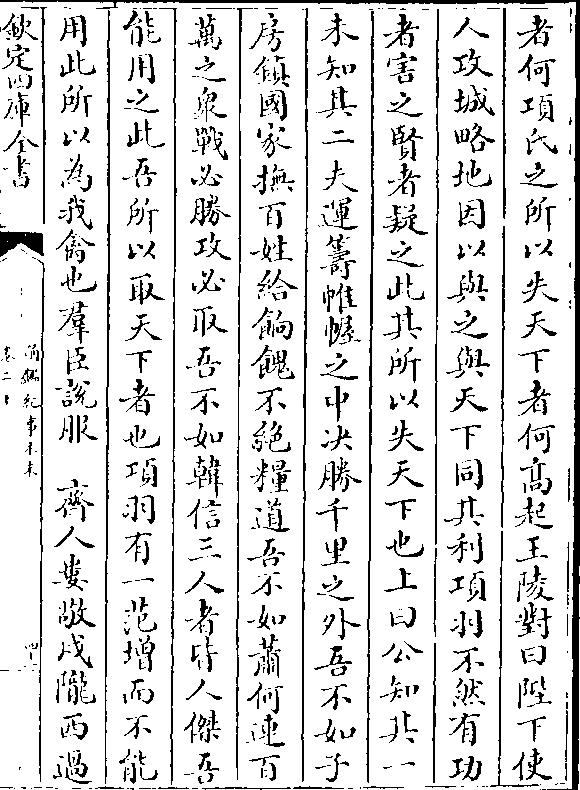 者何項氏之所以失天下者何高起王陵對曰陛下使
人攻城略地因以與之與天下同其利項羽不然有功
者害之賢者疑之此其所以失天下也上曰公知其一
未知其二夫運籌帷幄之中決勝千里之外吾不如子
房鎮國家撫百姓給餉餽不絶糧道吾不如蕭何連百
萬之衆戰必勝攻必取吾不如韓信三人者皆人傑吾
能用之此吾所以取天下者也項羽有一范增而不能
用此所以為我禽也羣臣說服 齊人婁敬戍隴西過
欽定四庫全書
通鑑紀事本末
卷二上